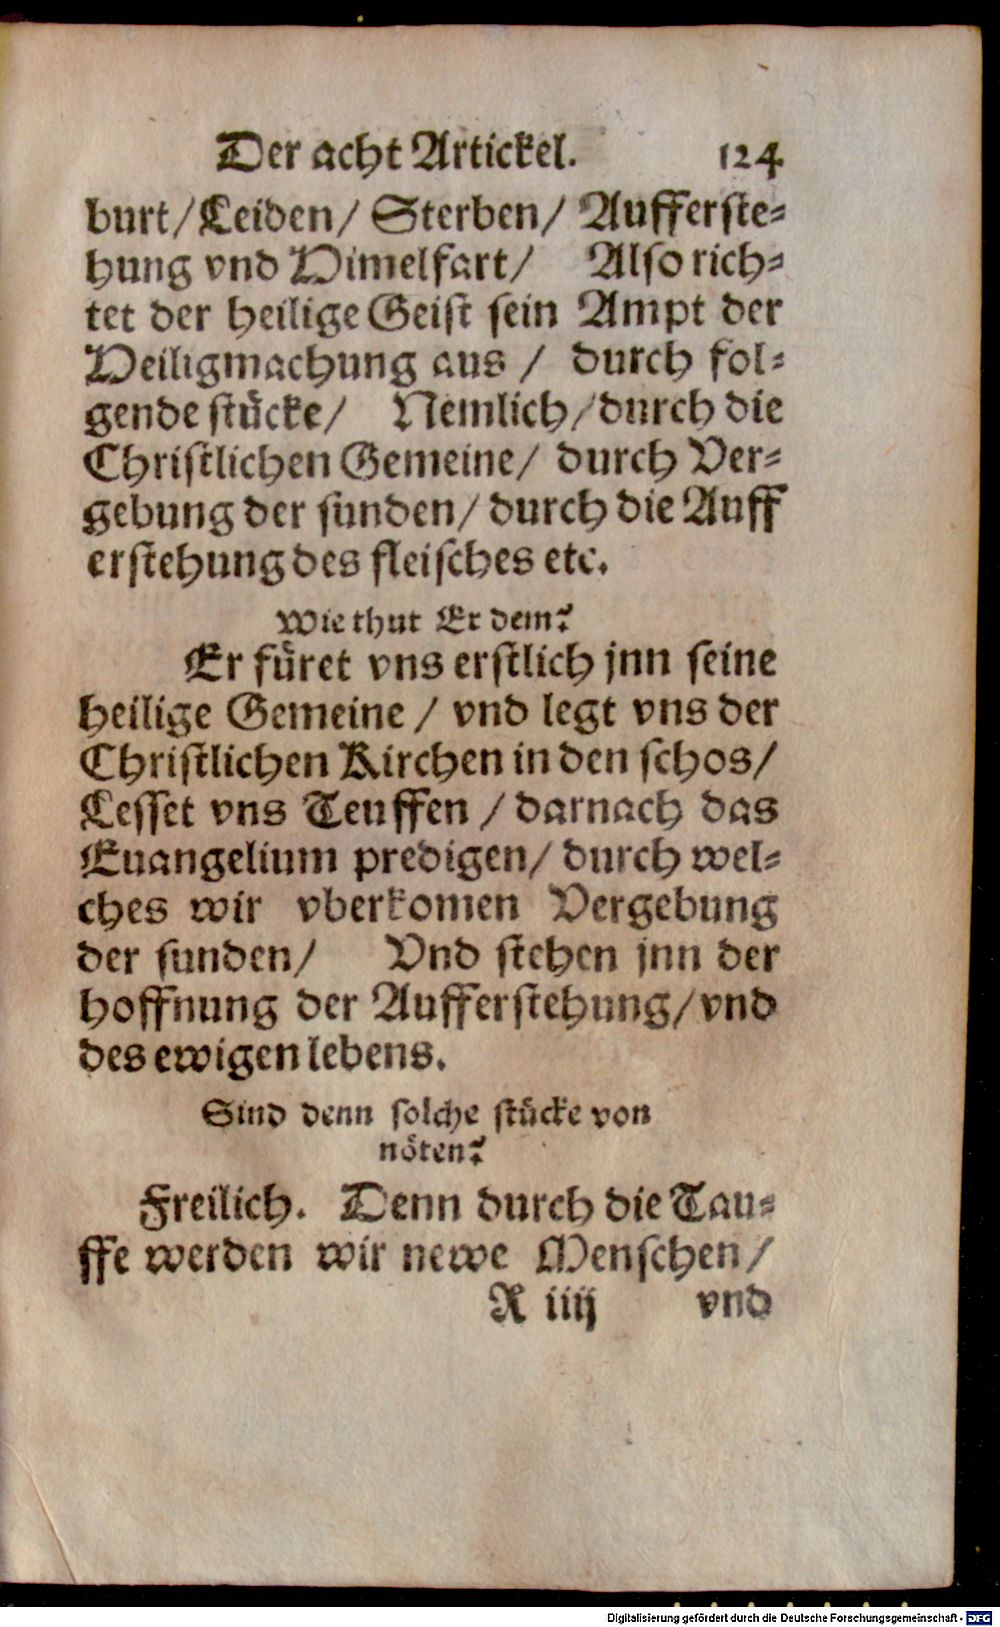 Der acht Artickel. 124
burt/Leiden/ Sterben/ Aufferste-
hung vnd Himelfart/ Also rich-
tet der heilige Geist sein Ampt der
Heiligmachung aus / durch fol-
gende stücke/ Nemlich/durch die
Christlichen Gemeine/ durch Ver-
gebung der sunden/ durch die Auff
erstehung des fleisches etc.
Wie thut Er dem?
Er füret vns erstlich jnn seine
heilige Gemeine / vnd legt vns der
Christlichen Kirchen in den schos/
Lesset vns Teuffen / darnach das
Euangelium predigen/ durch wel-
ches wir vberkomen Vergebung
der sunden/ Vnd stehen jnn der
hoffnung der Aufferstehung/vnd
des ewigen lebens.
Sind denn solche stücke von
nöten?
Freilich. Denn durch die Tau-
ffe werden wir newe Menschen/
R iiij vnd
Digitalisierung gefördert durch die Deutsche Forschungsgemeinschaft - DFG